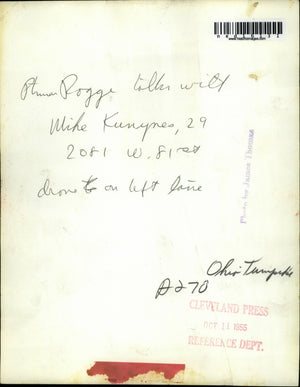 Ptlman Rogge talks with
Mike Kunynes, 29
2081 W. 81 st
drove to on left lane
Photo by James Thomas
Ohio Turnpike
A270
CLEVELAND PRESS
OCT 11 1955
REFERENCE DEPT.